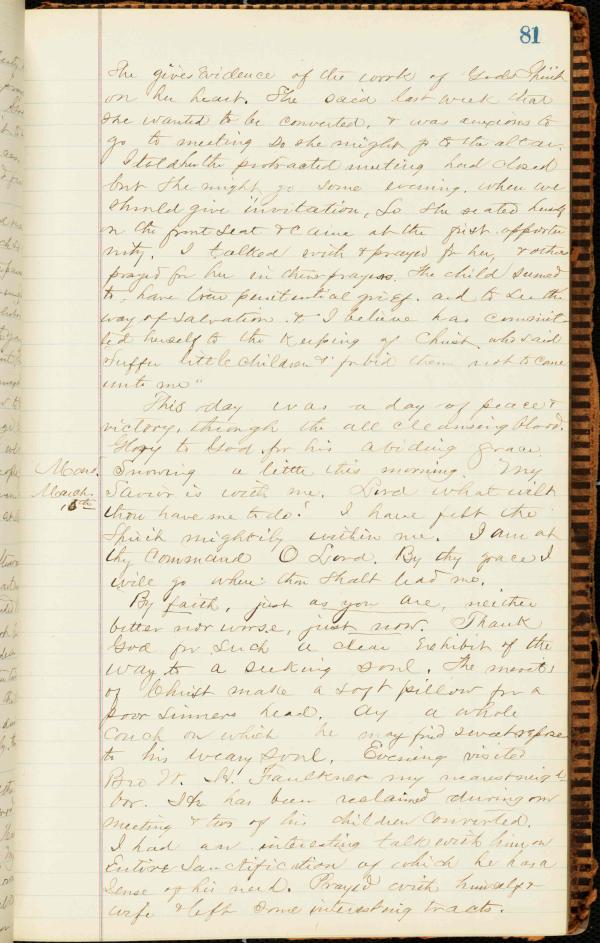 81
She gives evidence of the work of Gods Spirit
on her heart. She said last week that
she wanted to be converted. & was anxious to
go to meeting so she might go to the altar.
I told her the protracted meeting had closed
but she might go some evening. when we
should give invitation, So she seated herself
on the front seat & came at the first opportu
nity. I talked with & prayed for her, & others
prayed for her in their prayers. The child seemed
to have true penitential grief. and to see the
way of salvation. & I believe has commit-
ted herself to the keeping of Christ. who said
"Suffer little children & forbid them not to come
unto me"
This day was a day of peace &
victory, through the all cleansing blood.
Glory to God for his abiding grace.
Mon. Snowing a little this morning. My
March Savior is with me. Lord what wilt
thou have me to do? I have felt the
Spirit mightily within me. I am at
thy command O Lord. By thy grace I
will go where thou shalt lead me.
By faith, just as you are, neither
better nor worse, just now. Thank
God for such a clear exhibit of the
way to a seeking soul. The merits
of Christ make a soft pillow for a
poor sinners head. Ay a whole
couch on which he may find sweet repose
to his weary soul. Evening visited
Bro W. H. Faulkner my nearest neigh
bor. He has been reclaimed during our
meeting & two of his children converted.
I had an interesting talk with him on
Entire Sanctification of which he has a
sense of his need. Prayed with himself &
wife & left some interesting tracts.